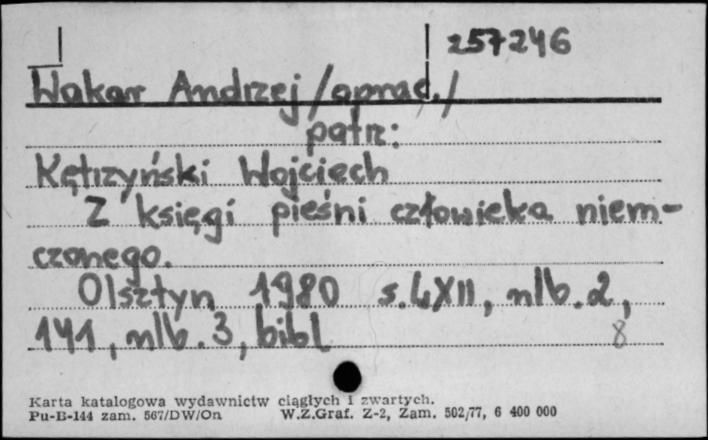 257246
Wakar Andrzej /oprac./
patrz:
Kętrzyński Wojciech
Z księgi pieśni człowieka niem-
czonego.
Olsztyn 1980 s. LXII, nlb. 2,
141, nlb. 3, bibl
8
Karta katalogowa wydawnictw ciągłych i zwartych.
Pu-B-144 zam. 567/DW/On W.Z.Graf. Z-2, Zam. 502/77, 6 400 000